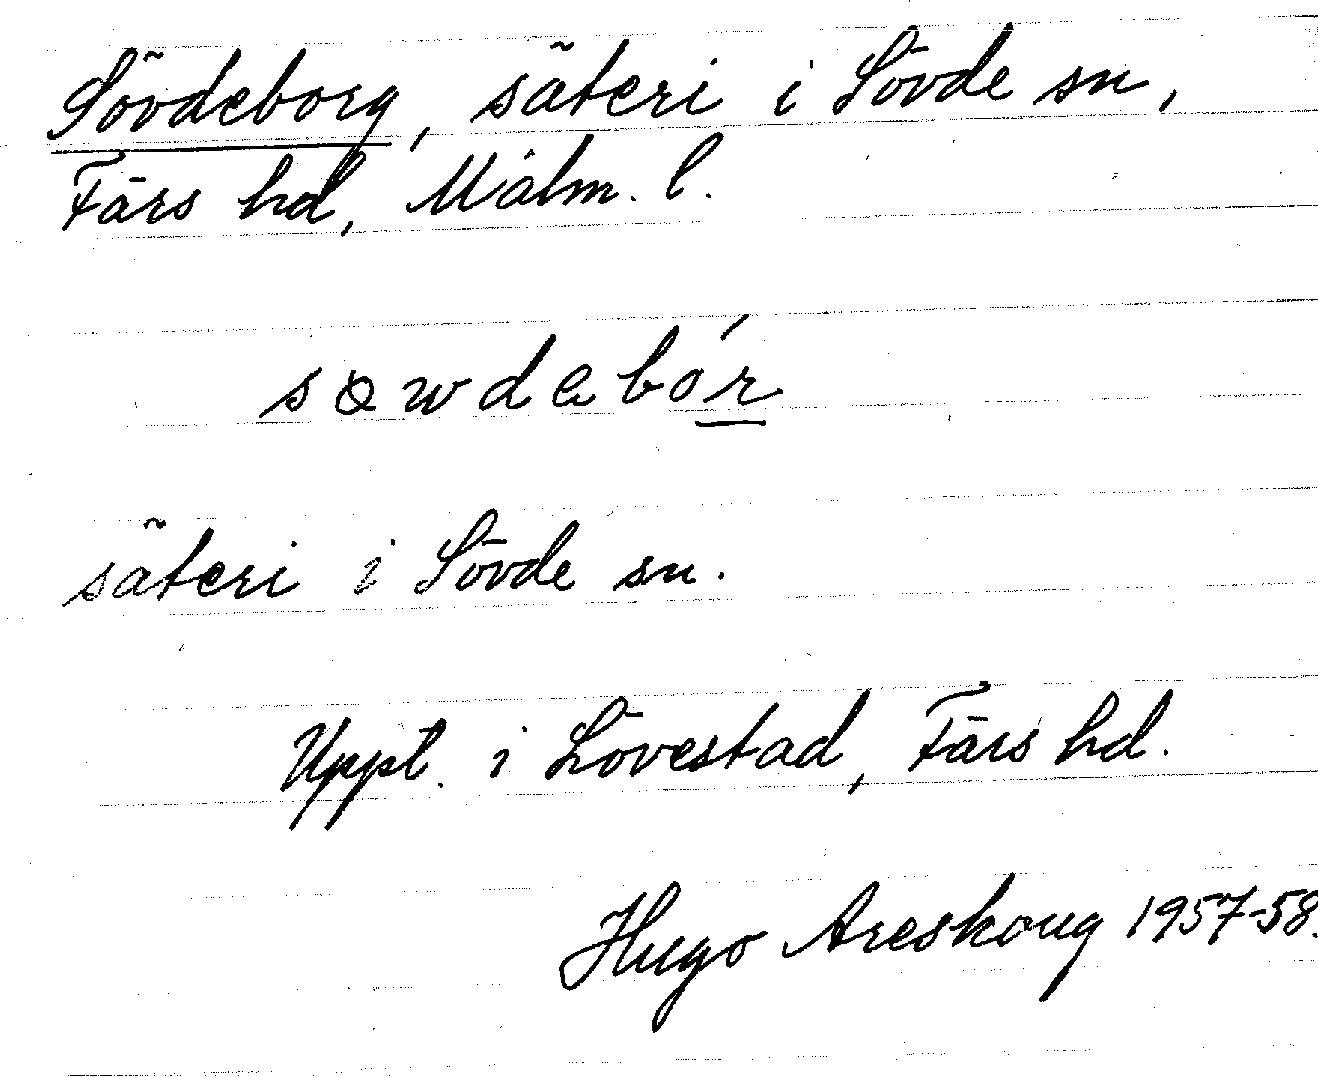 Sövdeborg, säteri i Sövde sn,
Färs hd, Malm. l.
søwdabór
säteri i Sövde sn.
Uppt. i Lövestad, Färs hd.
Hugo Areskoug 1957-58.